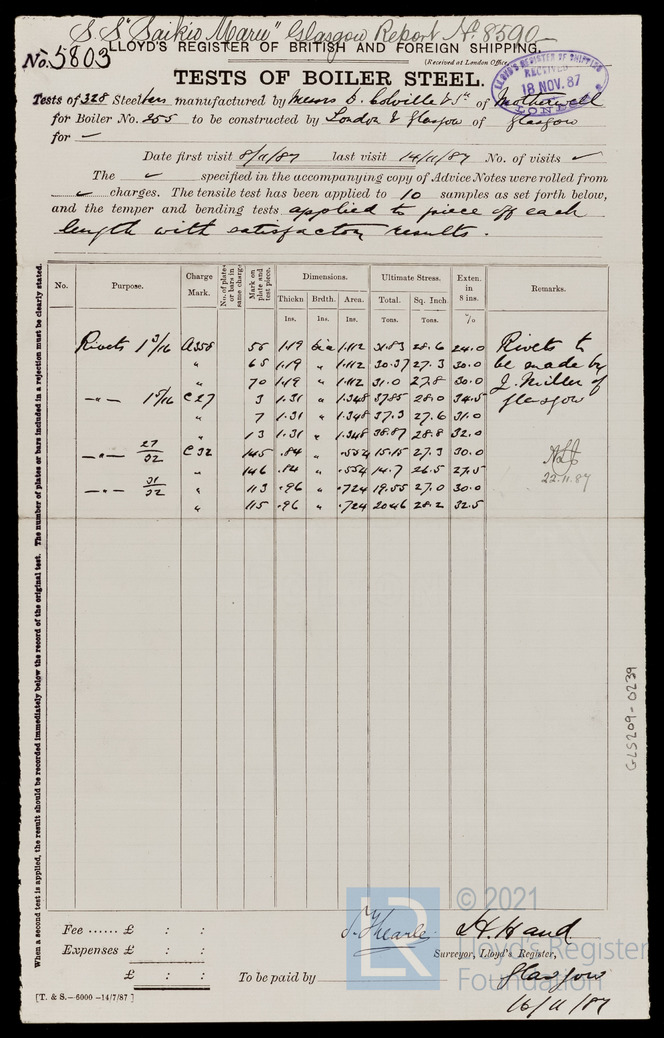 S.S "Saikio Maru" Glasgow Report No. 8590
No. 5803
LLOYD'S REGISTER OF BRITISH AND FOREIGN SHIPPING.
(Received at London Office
TESTS OF BOILER STEEL.
LLOYD'S REGISTER OF SHIPPING
RECEIVED
18 NOV. 87
LONDON
Tests of 328 Steel bars manufactured by Messrs D. Colville & Sn of Motherwell
for Boiler No. 255 to be constructed by London & Glasgow of Glasgow
for —
Date first visit 8/11/87 last visit 14/11/87 No. of visits ✓
The ✓ specified in the accompanying copy of Advice Notes were rolled from
✓ charges. The tensile test has been applied to 10 samples as set forth below,
and the temper and bending tests applied to piece off each
length with satisfactory results.
No. Purpose. Charge Mark. No. of plates or bars in same charge Mark on plate and test piece. Dimensions. Ultimate Stress. Exten. in 8 ins. Remarks.
Thickn Brdth. Area. Total. Sq. Inch
Ins. Ins. Ins. Tons. Tons. %
Rivets 1 3/16 A358 55 1.19 dia 1.112 31.83 28.6 24.0 Rivets to
" 65 1.19 " 1.112 30.37 27.3 30.0 be made by
" 70 1.19 " 1.112 31.0 27.8 30.0 J. Miller of
—"— 1 5/16 C27 3 1.31 " 1.348 37.85 28.0 34.5 Glasgow
" 7 1.31 " 1.348 37.3 27.6 31.0
" 13 1.31 " 1.348 38.87 28.8 32.0
—"— 27/32 C32 145 .84 " .554 15.15 27.3 30.0
" 146 .84 " .554 14.7 26.5 27.5
22.11.87
—"— 31/32 " 113 .96 " .724 19.55 27.0 30.0
" 115 .96 " .724 20.46 28.2 32.5
When a second test is applied, the result should be recorded immediately below the record of the original test. The number of plates or bars included in a rejection must be clearly stated.
GLS209-0239
Fee ...... £ : :
Expenses £ : :
£ : :
To be paid by
H. Hand
Surveyor, Lloyd's Register,
Glasgow
16/11/87
[T. & S.—6000 -14/7/87 ]
LR
© 2021
Lloyd's Register
Foundation